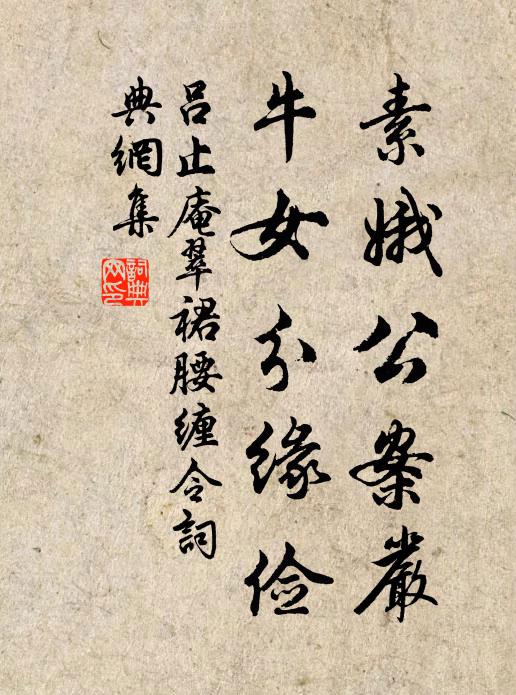 素娥公案嚴
牛女分缘儉
吕止庵翠裙腰纏令詞
典網集
詞典网印